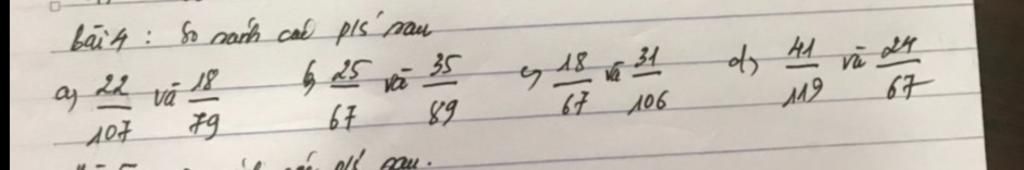 bài 4 : So sánh các p/s' sau
a, 22/107 và 18/79 b, 25/67 và 35/89 c, 18/67 và 31/106 d, 41/119 và 24/67
p/s' sau.